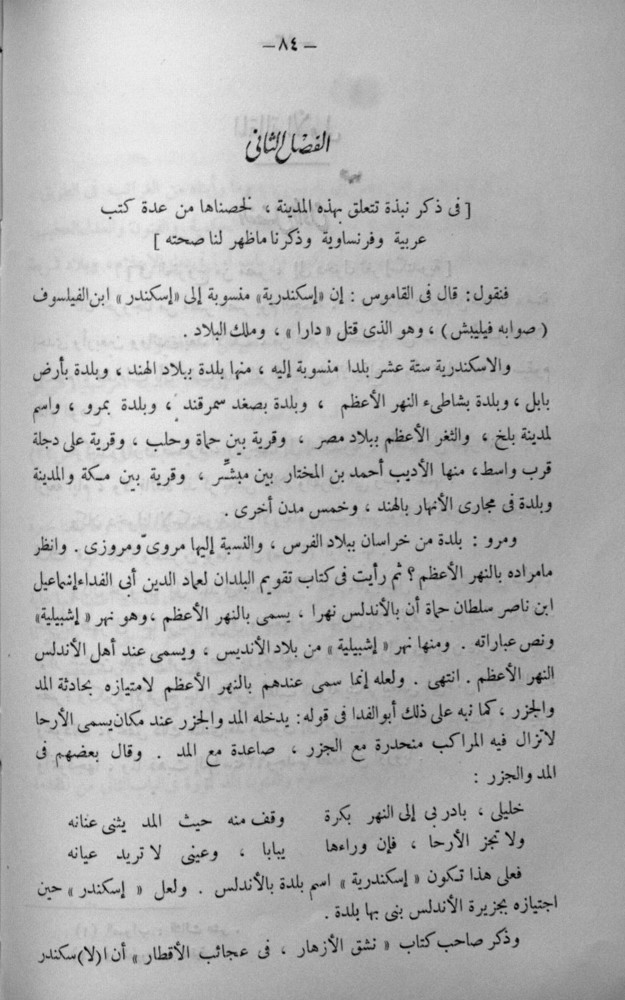 — ٨٤ —
الفصل الثانى
[ فى ذكر نبذة تتعلق بهذه المدينة ، لخصناها من عدة كتب
عربية وفرنساوية وذكرنا ماظهر لنا صحته ]
فنقول: قال فى القاموس : إن «إسكندرية» منسوبة إلى «إسكندر» ابن الفيلسوف
( صوابه فيليبش ) ، وهو الذى قتل « دارا » ، وملك البلاد .
والاسكندرية ستة عشر بلدا منسوبة إليه ، منها بلدة ببلاد الهند ، وبلدة بأرض
بابل ، وبلدة بشاطىء النهر الأعظم ، وبلدة بصغد سمرقند ، وبلدة بمرو ، واسم
لمدينة بلخ ، والثغر الأعظم ببلاد مصر ، وقرية بين حماة وحلب ، وقرية على دجلة
قرب واسط، منها الأديب أحمد بن المختار بن مبشّر ، وقرية بين مكة والمدينة
وبلدة فى مجارى الأنهار بالهند ، وخمس مدن أخرى .
ومرو : بلدة من خراسان ببلاد الفرس ، والنسبة إليها مروىّ ومروزى . وانظر
مامراده بالنهر الأعظم ؟ ثم رأيت فى كتاب تقويم البلدان لعماد الدين أبى الفداء إسماعيل
ابن ناصر سلطان حماة أن بالأندلس نهرا ، يسمى بالنهر الأعظم ، وهو نهر « إشبيلية»
ونص عباراته . ومنها نهر « إشبيلية » من بلاد الأنديس ، ويسمى عند أهل الأندلس
النهر الأعظم . انتهى . ولعله إنما سمى عندهم بالنهر الأعظم لامتيازه بحادثة المد
والجزر ، كما نبه على ذلك أبوالفدا فى قوله: يدخله المد والجزر عند مكان يسمى الأرحا
لاتزال فيه المراكب منحدرة مع الجزر ، صاعدة مع المد . وقال بعضهم فى
المد والجزر :
خليلى ، بادر بى إلى النهر بكرة وقف منه حيث المد يثنى عنانه
ولا تجز الأرحا ، فإن وراءها يبابا ، وعينى لا تريد عيانه
فعلى هذا تكون « إسكندرية » اسم بلدة بالأندلس . ولعل « إسكندر » حين
اجتيازه بجزيرة الأندلس بنى بها بلدة .
وذكر صاحب كتاب « نشق الأزهار ، فى عجائب الأقطار » أن ا(لا)سكندر